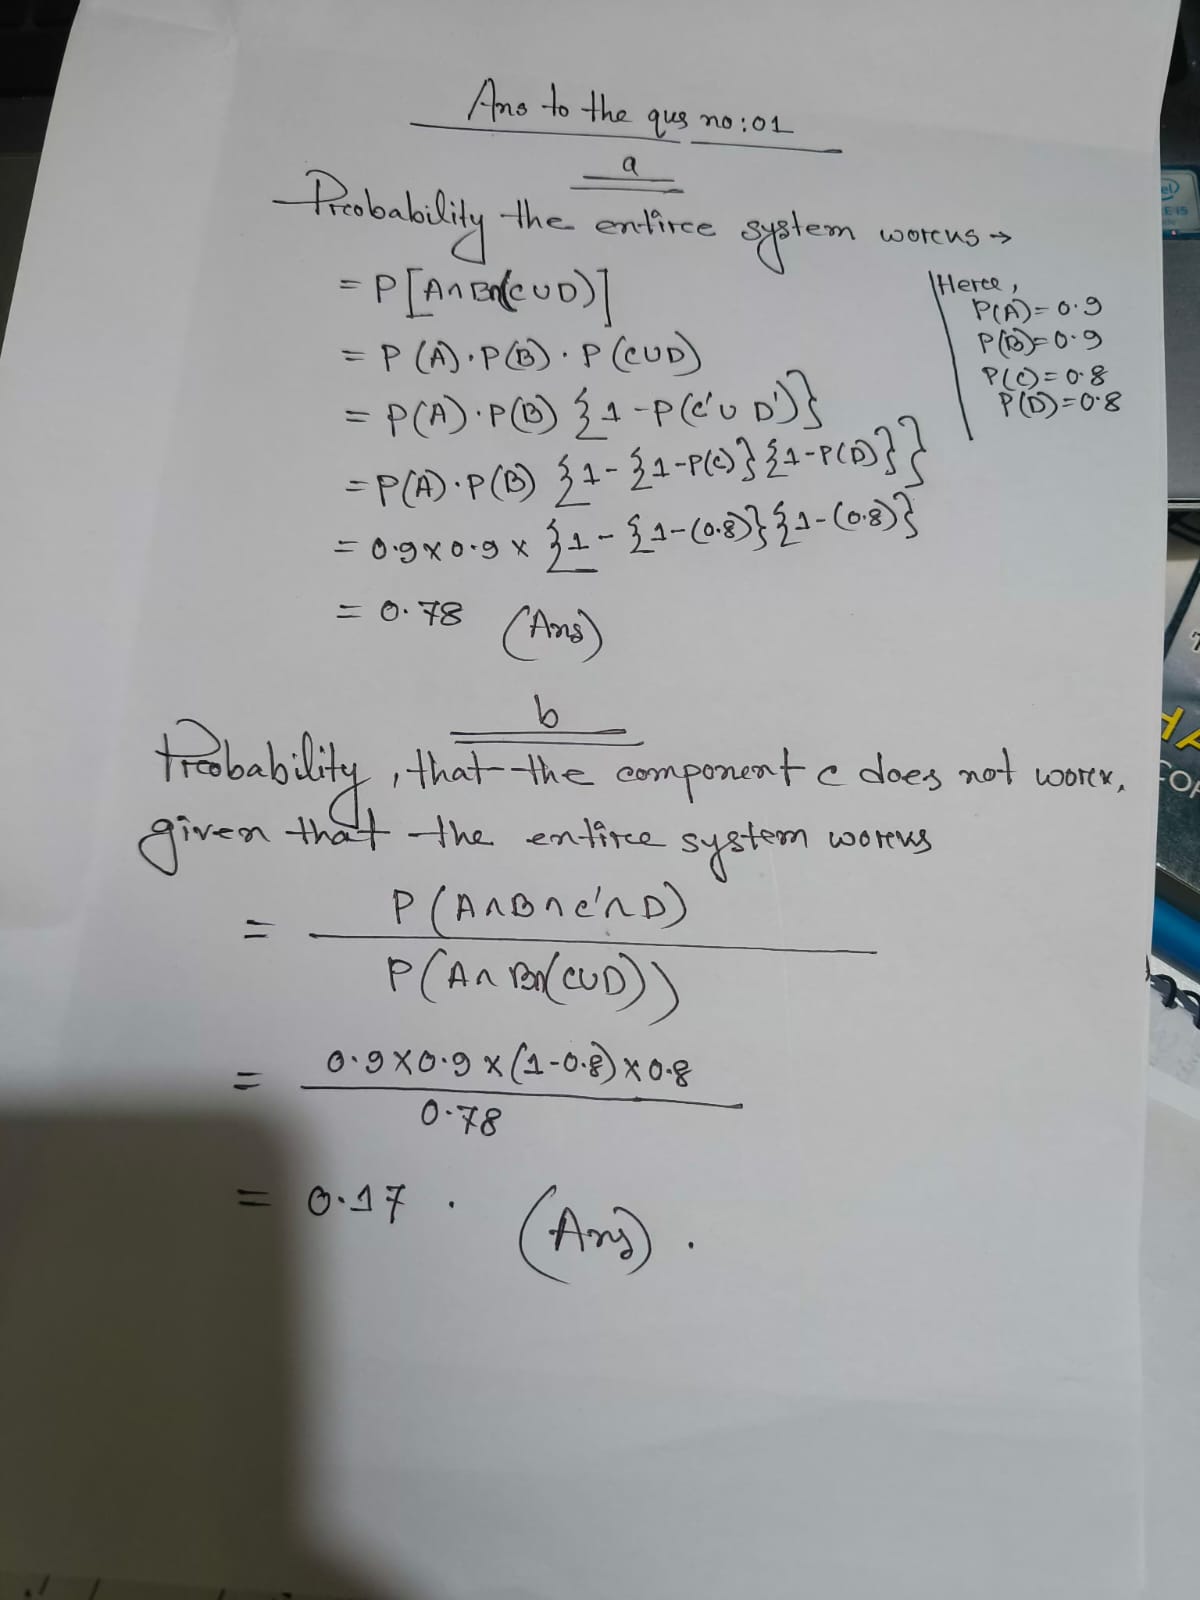 Ans to the qus no:01
a
Probability the entire system works →
= P[A∩B∩(C∪D)]
Here,
P(A)=0.9
P(B)=0.9
P(C)=0.8
P(D)=0.8
= P(A)·P(B)·P(C∪D)
= P(A)·P(B) {1-P(C'∪D')}
= P(A)·P(B) {1-{1-P(C)}{1-P(D)}}
= 0.9×0.9×{1-{1-(0.8)}{1-(0.8)}
= 0.78 (Ans)
b
Probability, that the component c does not work,
given that the entire system works
= P(A∩B∩C'∩D)
P(A∩B∩(C∪D))
= 0.9×0.9×(1-0.8)×0.8
0.78
= 0.17. (Ans).